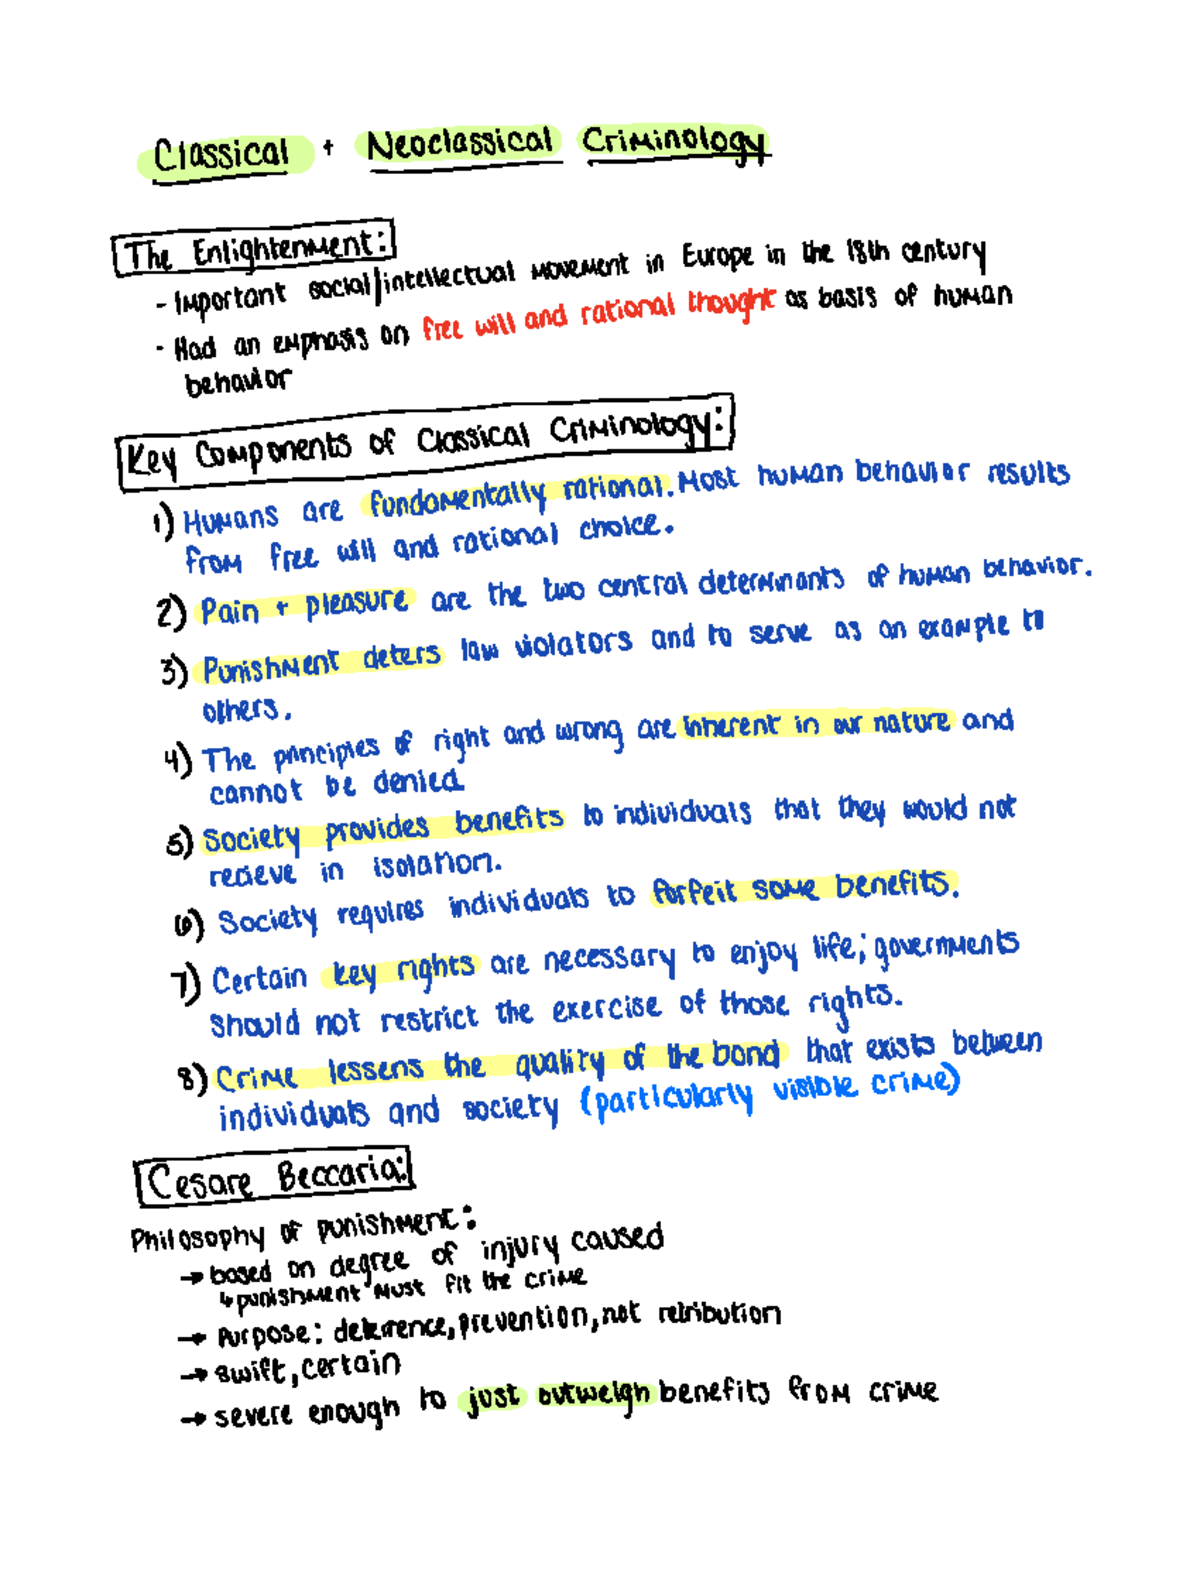 Classical + Neoclassical Criminology
The Enlightenment:
- Important social/intellectual movement in Europe in the 18th century
- Had an emphasis on free will and rational thought as basis of human
behavior
Key Components of Classical Criminology:
1) Humans are fundamentally rational. Most human behavior results
from free will and rational choice.
2) Pain + pleasure are the two central determinants of human behavior.
3) Punishment deters law violators and to serve as an example to
others.
4) The principles of right and wrong are inherent in our nature and
cannot be denied.
5) Society provides benefits to individuals that they would not
recieve in isolation.
6) Society requires individuals to forfeit some benefits.
7) Certain key rights are necessary to enjoy life; governments
should not restrict the exercise of those rights.
8) Crime lessens the quality of the bond that exists between
individuals and society (particularly visible crime)
Cesare Beccaria:
Philosophy of punishment:
→ based on degree of injury caused
↳ punishment must fit the crime
→ Purpose: deterrence, prevention, not retribution
→ swift, certain
→ severe enough to just outweigh benefits from crime